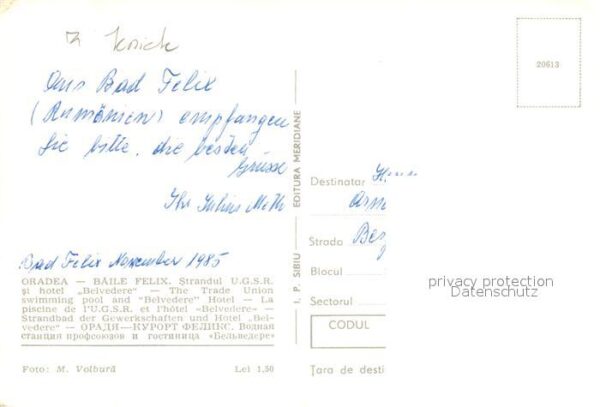 Knick
Aus Bad Felix
(Rumänien) empfangen
Sie bitte, die besten
Grüsse
Ihr Julius Moth
Bad Felix November 1985
ORADEA — BĂILE FELIX. Ştrandul U.G.S.R.
şi hotel „Belvedere" — The Trade Union
swimming pool and "Belvedere" Hotel — La
piscine de l'U.G.S.R. et l'hôtel «Belvedere» —
Strandbad der Gewerkschaften und Hotel „Bel-
vedere" — ОРАДИ—КУРОРТ ФЕЛИКС. Водная
станция профсоюзов и гостиница «Бельведере»
Foto: M. Volbură
Lei 1,50
I. P. SIBIU
EDITURA MERIDIANE
20613
Destinatar
Strada
Blocul
Sectorul
CODUL
Ţara de desti
privacy protection
Datenschutz